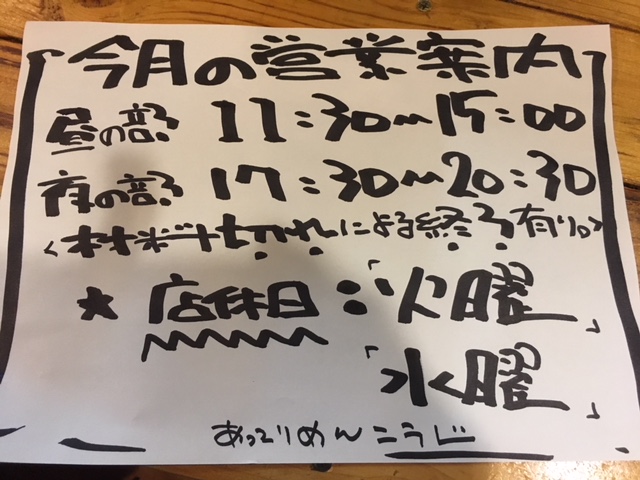 今月の営業案内
昼の部 11:30〜15:00
夜の部 17:30〜20:30
<材料切れによる終了有り。>
★ 店休日:「火曜」
「水曜」
あっさりめん こうじ